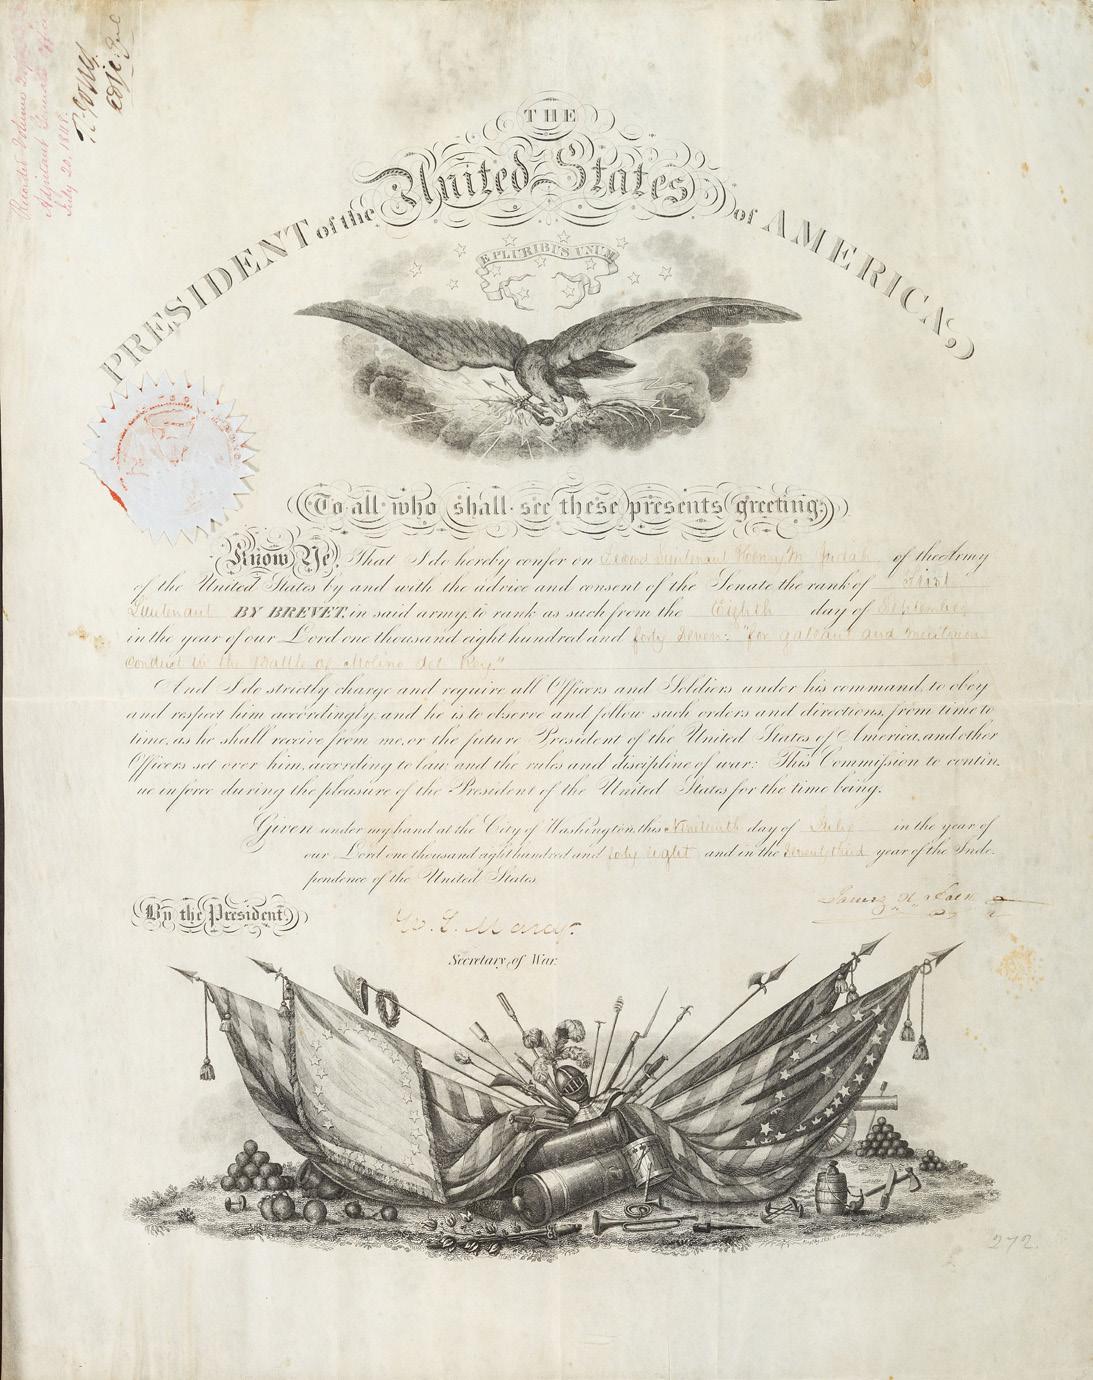 THE
United States
PRESIDENT of the
of AMERICA,
E PLURIBUS UNUM
To all who shall see these presents greeting:
Know Ye, That I do hereby confer on Second Lieutenant Henry M. Judah of the Army
of the United States by and with the advice and consent of the Senate the rank of First
Lieutenant BY BREVET, in said army, to rank as such from the Eighth day of September
in the year of our Lord one thousand eight hundred and forty seven: "for gallant and meritorious
conduct in the Battle of Molino del Rey."
And I do strictly charge and require all Officers and Soldiers under his command, to obey
and respect him accordingly, and he is to observe and follow such orders and directions, from time to
time, as he shall receive from me, or the future President of the United States of America, and other
Officers set over him, according to law, and the rules and discipline of war: This Commission to contin.
ue in force during the pleasure of the President of the United States for the time being.
Given under my hand at the City of Washington, this Nineteenth day of July in the year of
our Lord one thousand eight hundred and forty eight and in the Seventy third year of the Inde.
pendence of the United States.
By the President,
James K. Polk
W. L. Marcy.
Secretary of War.
272.
Adjutant General's Office
July 20. 1848.
R. Jones
Adj. Genl